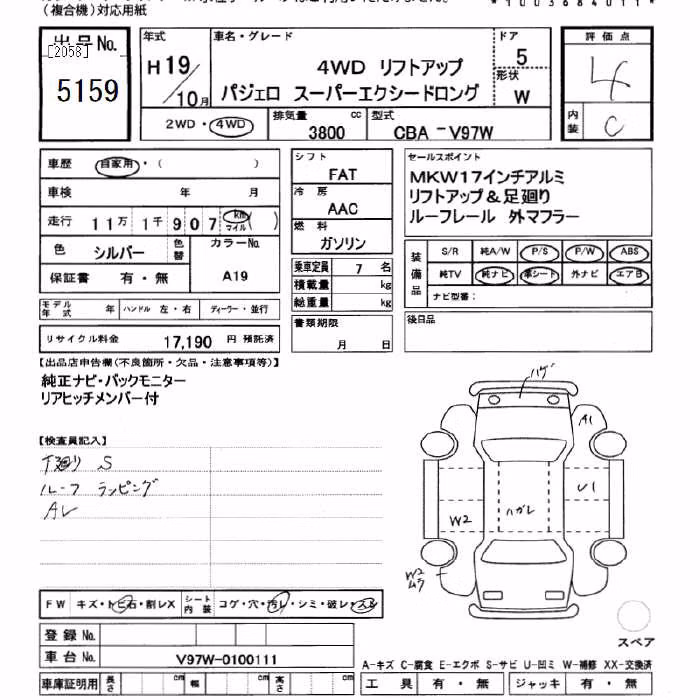 （複合機）対応用紙
*1003684011*
出品No.
[2058]
5159
年式
H19/10月
車名・グレード
4WD リフトアップ
パジェロ スーパーエクシードロング
ドア
5
形状
W
評価点
4
内装
C
2WD・4WD
排気量
3800 cc
型式
CBA-V97W
車歴 自家用・( )
車検 年 月
走行 11万1千907 km マイル ( )
色 シルバー 色替 カラーNo. A19
保証書 有・無
モデル年式 年 ハンドル 左・右 ディーラー・並行
リサイクル料金 17,190 円 預託済
シフト
FAT
冷房
AAC
燃料
ガソリン
乗車定員 7 名
積載量 kg
総重量 kg
書類期限
月 日
セールスポイント
MKW17インチアルミ
リフトアップ＆足廻り
ルーフレール 外マフラー
装備品
S/R 純A/W P/S P/W ABS
純TV 純ナビ 革シート 外ナビ エアB
ナビ型番：
後日品
【出品店申告欄(不良箇所・欠品・注意事項等)】
純正ナビ・バックモニター
リアヒッチメンバー付
【検査員記入】
下廻り S
ルーフ ラッピング
ハゲ
A1
U1
W2
ハガレ
W2
FW キズ・トビ石・割レX シート内装 コゲ・穴・汚レ・シミ・破レ・スレ
登録No.
車台No. V97W-0100111
車庫証明用 長さ cm 幅 cm 高さ cm
スペア
A-キズ C-腐食 E-エクボ S-サビ U-凹ミ W-補修 XX-交換済
工具 有・無 ジャッキ 有・無